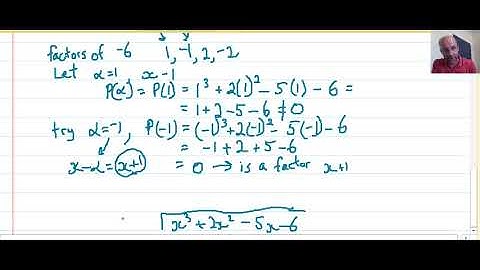 factors of -6   1, -1, 2, -2
Let α=1   x-1
P(α) = P(1) = 1³ + 2(1)² - 5(1) - 6 =
= 1+2-5-6 ≠ 0
try α=-1, P(-1) = (-1)³+2(-1)² - 5(-1) - 6
= -1 + 2 + 5 - 6
x-α = x+1   = 0 → is a factor x+1
x³ + 2x² - 5x - 6